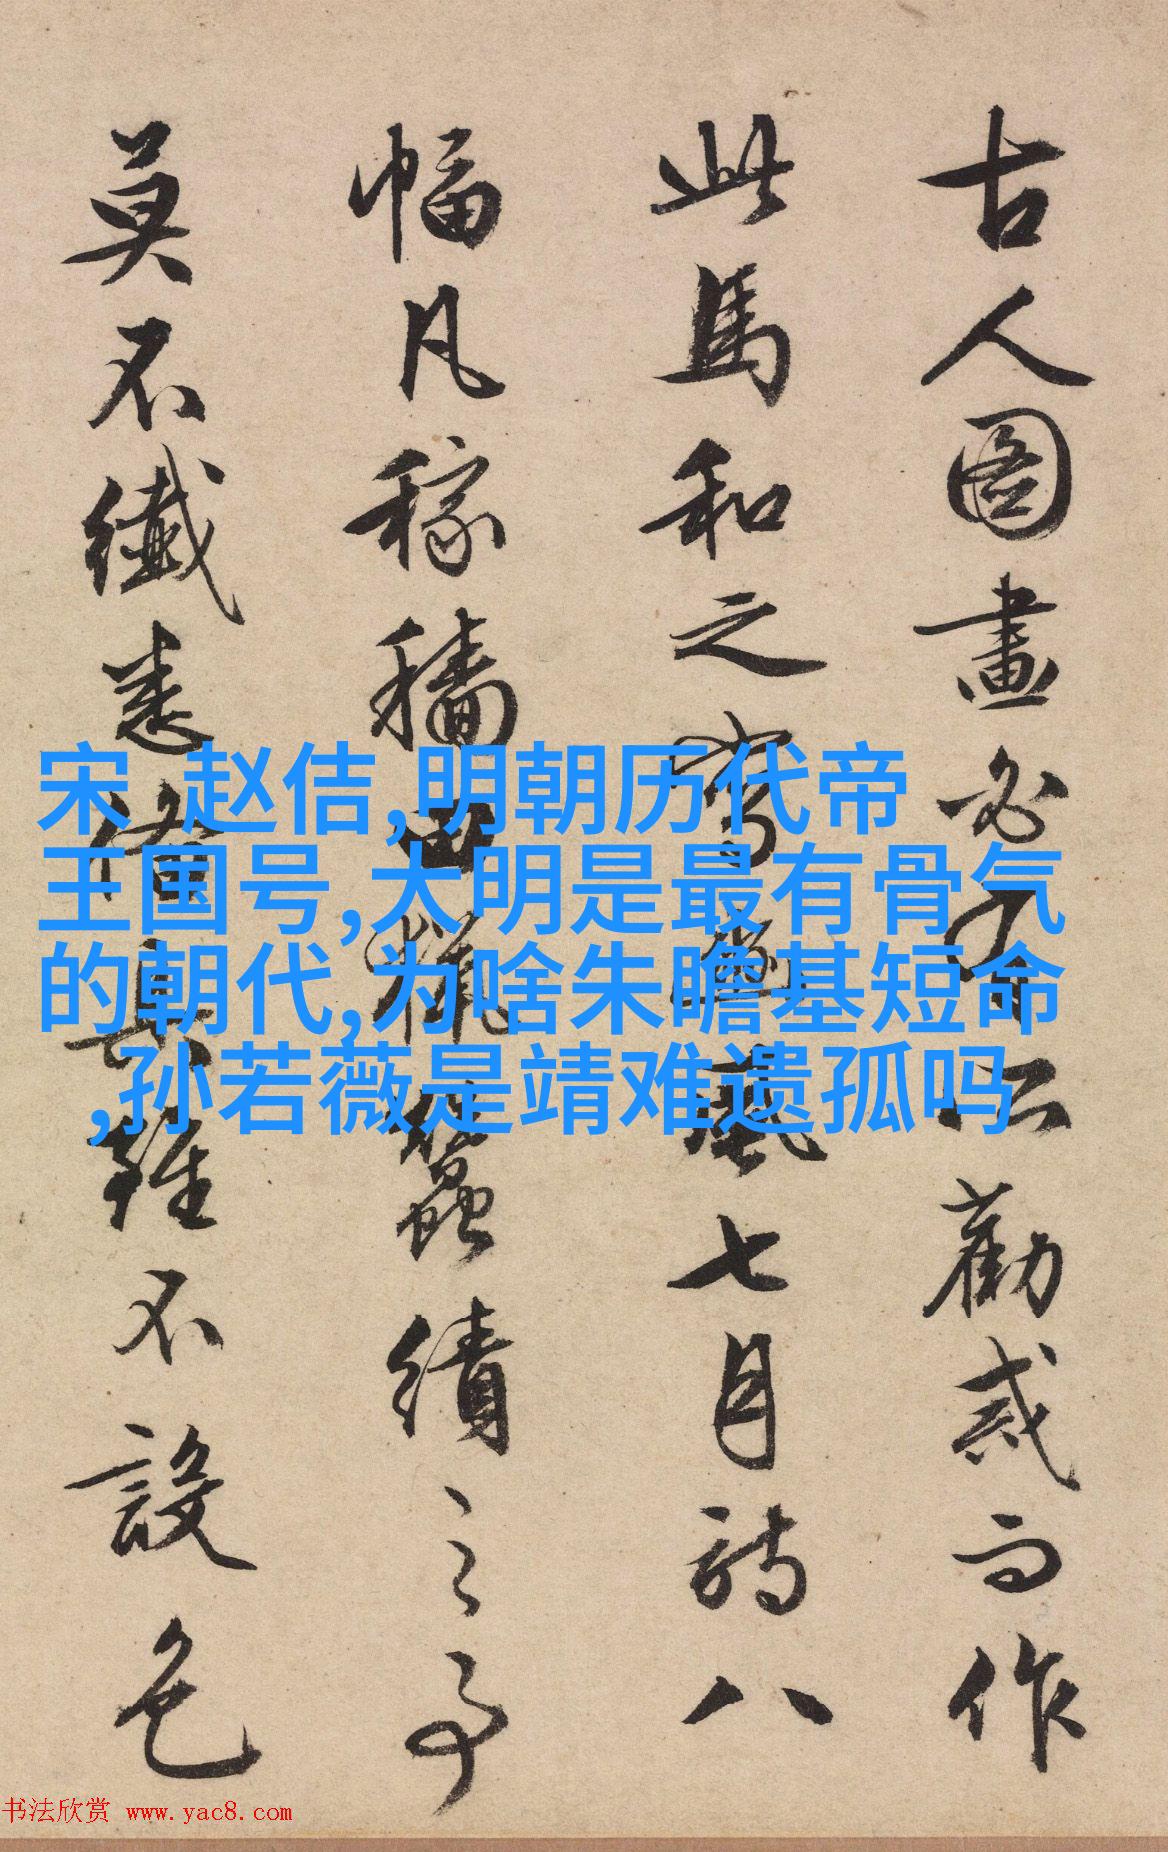 古人圖畫必有所勸戒而作
此馬和之寫豳風七月詩八
幅凡稼穡田獵蠶績之事
莫不纖悉備具雖不設色
宋 赵佶,明朝历代帝
王国号,大明是最有骨气
的朝代,为啥朱瞻基短命
,孙若薇是靖难遗孤吗
书法欣赏 www.yac8.com